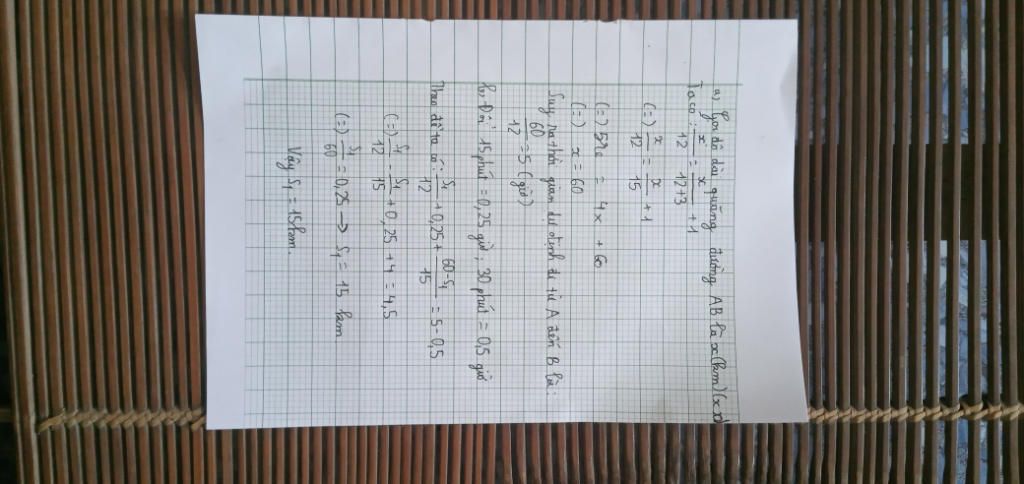 a) Gọi độ dài quãng đường AB là x(km) (x>0)
Ta có: x/12 = x/(12+3) + 1
(=) x/12 = x/15 + 1
(=) 5x = 4x + 60
(=) x = 60
Suy ra thời gian dự định đi từ A đến B là:
60/12 = 5 (giờ)
b, Đổi 15 phút = 0,25 giờ; 30 phút = 0,5 giờ
Theo đề ta có: S1/12 + 0,25 + (60-S1)/15 = 5 - 0,5
(=) S1/12 - S1/15 + 0,25 + 4 = 4,5
(=) S1/60 = 0,25 → S1 = 15 km
Vậy S1 = 15km.